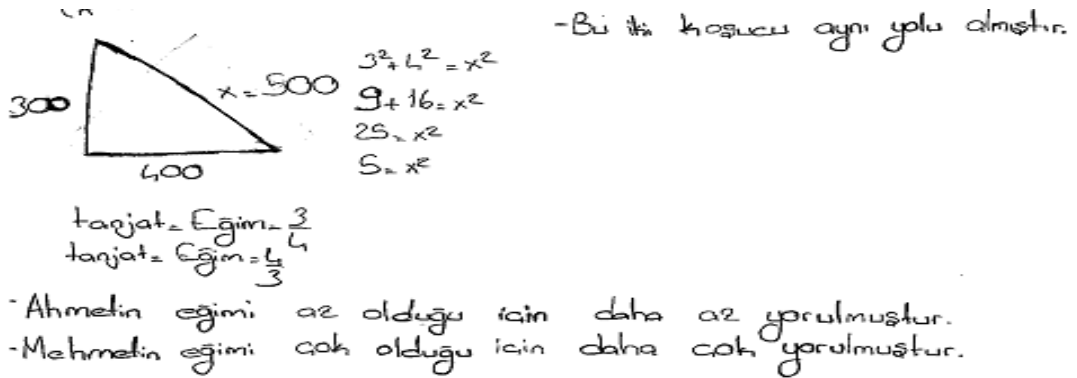 -Bu iki koşucu aynı yolu almıştır.
300
x=500
400
3²+4²=x²
9+16=x²
25=x²
5=x²
tanjat=Eğim=3/4
tanjat=Eğim=4/3
-Ahmetin eğimi az olduğu için daha az yorulmuştur.
-Mehmetin eğimi çok olduğu için daha çok yorulmuştur.